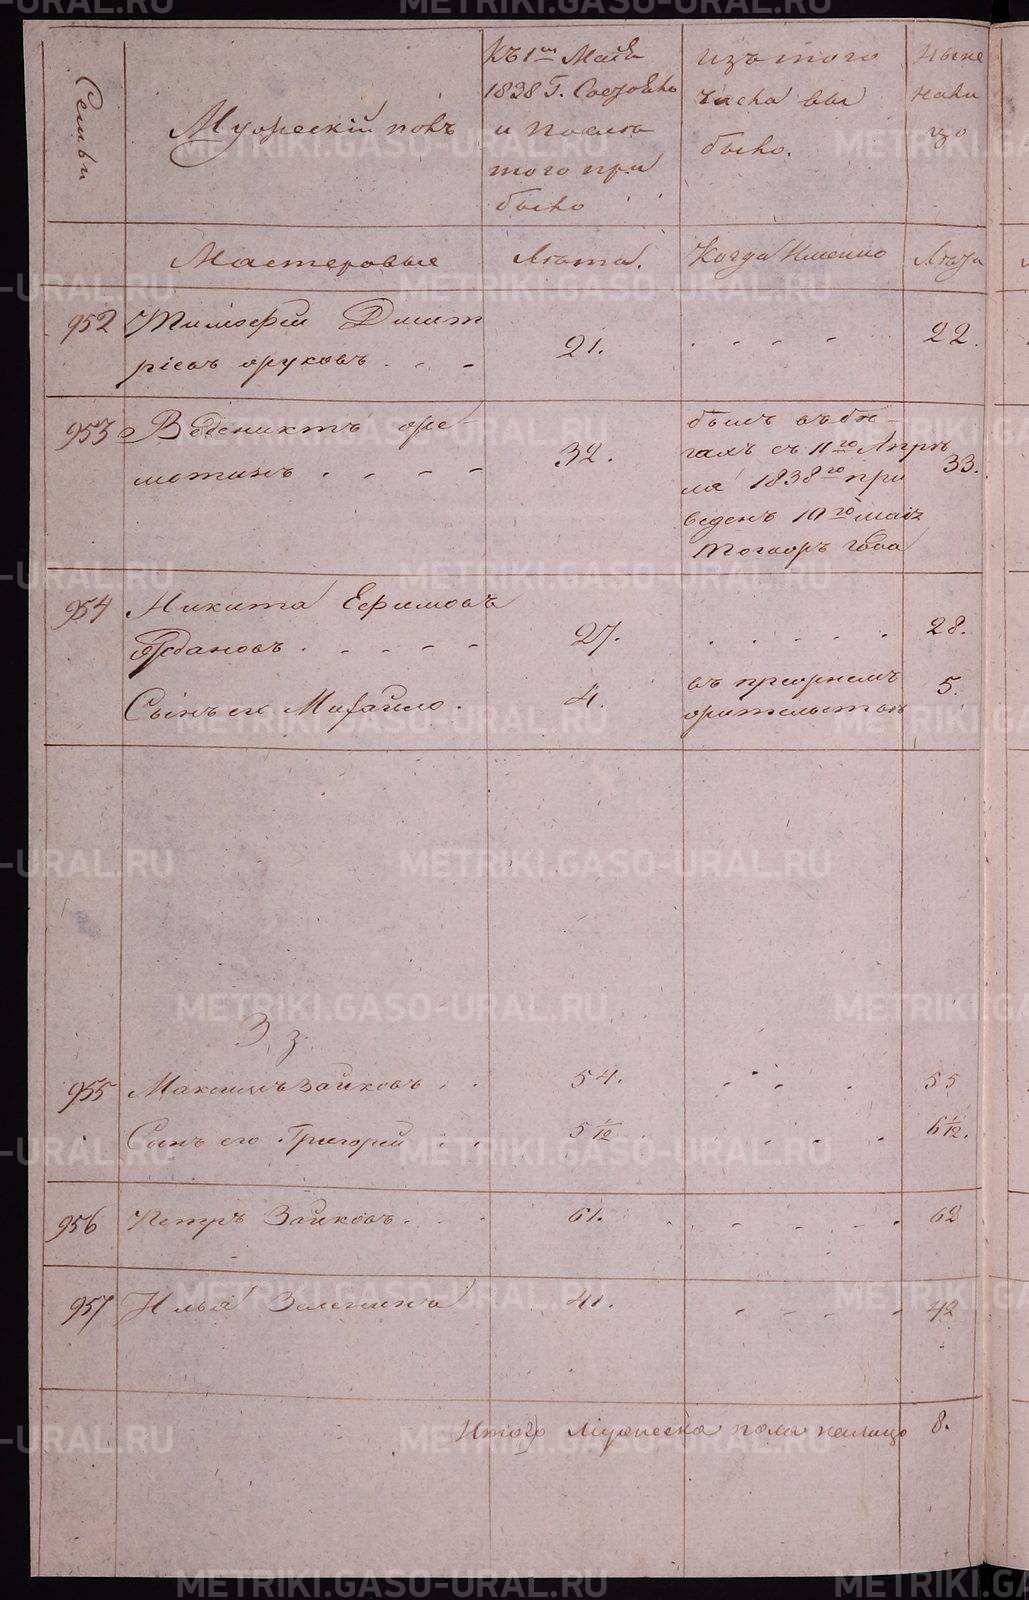 Семьи
Мужескій полъ
Къ 1му Маія
1838 Г. Состояло
и после
того при
было
Изъ того
числа вы
было.
Ныне
нали
цо
Мастеровые
Лета.
Когда Именно
Лета
952 Тимофей Дмит
ріевъ 21. 22.
953 32. 33.
былъ въ бе-
гахъ съ 11го Апре
ля 1838го при
веденъ 19го маія
того года
954 Никита Ефимовъ
27. 28.
Сынъ его Михайло. 4. 5.
З з
955 Максимъ Зайковъ 54. 55
Сынъ его Григорей 5 1/12 6 1/12.
956 Петръ Зайковъ. 61. 62
957 Илья Зеленинъ 41. 42
Итого Мужеска пола налицо 8.
METRIKI.GASO-URAL.RU